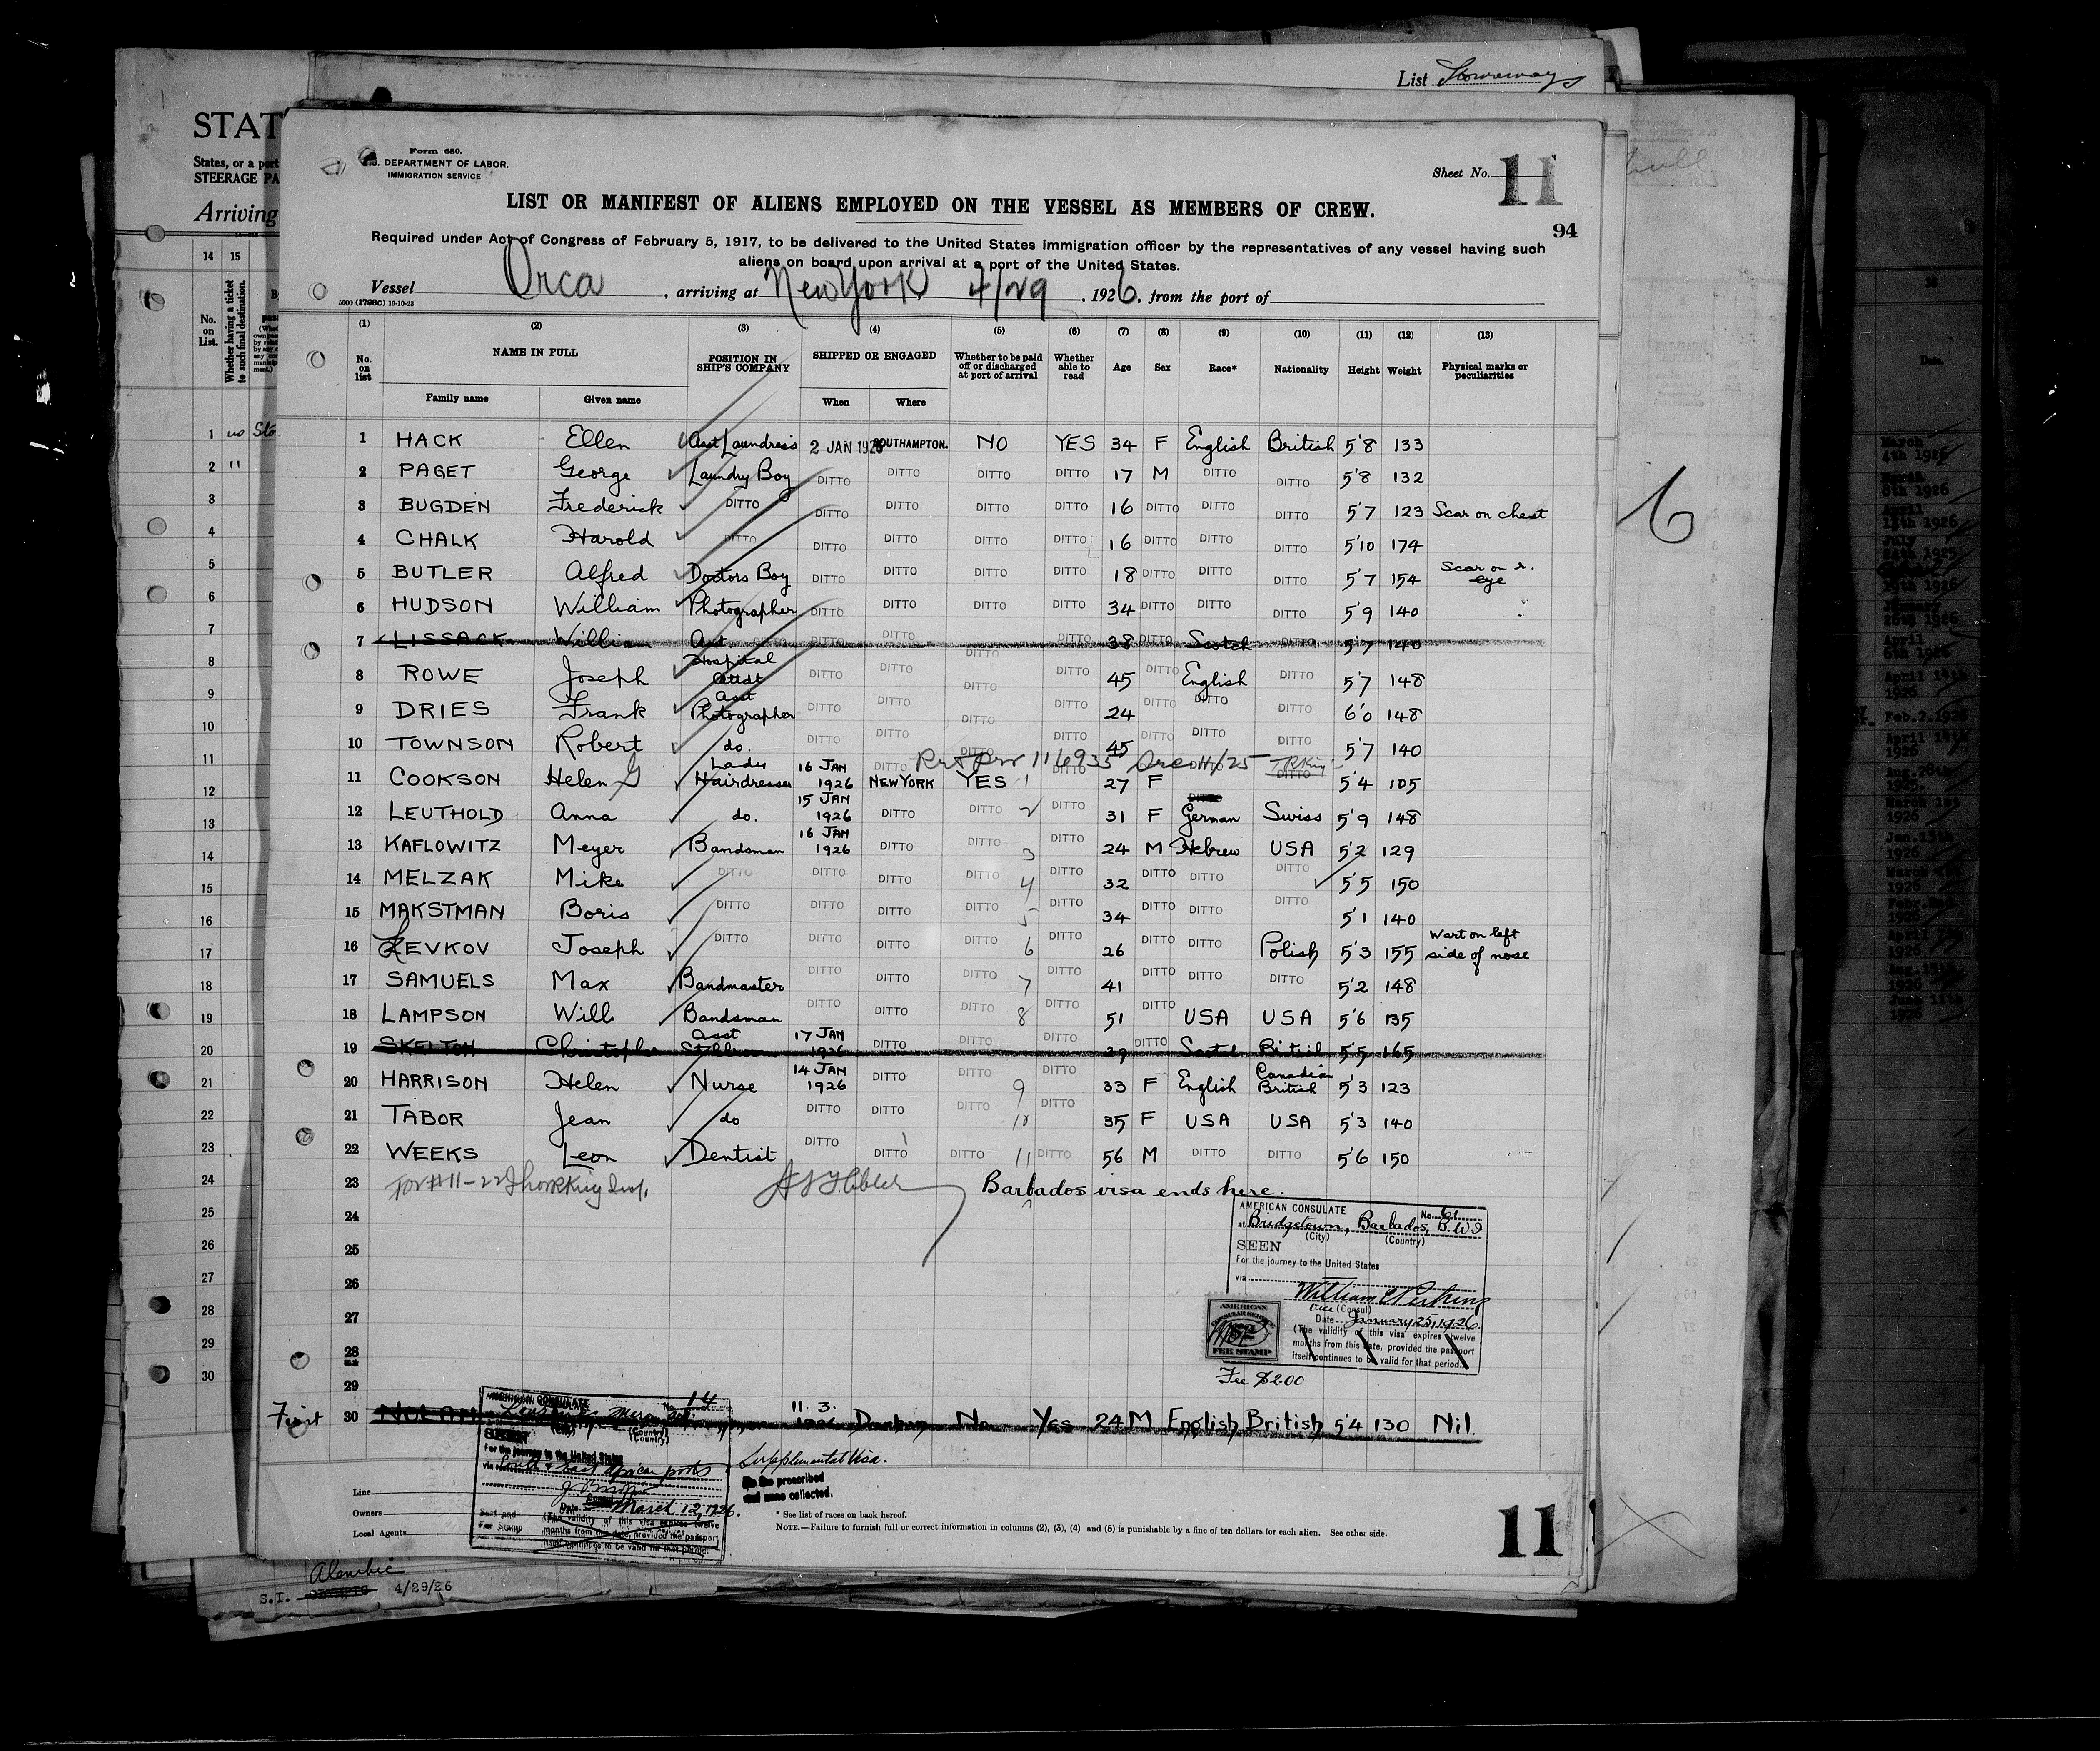 List Stowaways
STAT
States, or a port
STEERAGE PA
Arriving
Form 680.
U.S. DEPARTMENT OF LABOR.
IMMIGRATION SERVICE
Sheet No. 11
LIST OR MANIFEST OF ALIENS EMPLOYED ON THE VESSEL AS MEMBERS OF CREW.
94
Required under Act of Congress of February 5, 1917, to be delivered to the United States immigration officer by the representatives of any vessel having such
aliens on board upon arrival at a port of the United States.
Vessel Orca, arriving at New York 4/29, 1926, from the port of
5000 (1798c) 10-10-23
(1) (2) (3) (4) (5) (6) (7) (8) (9) (10) (11) (12) (13)
No. on list NAME IN FULL POSITION IN SHIP'S COMPANY SHIPPED OR ENGAGED Whether to be paid off or discharged at port of arrival Whether able to read Age Sex Race* Nationality Height Weight Physical marks or peculiarities
Family name Given name When Where
1 HACK Ellen Asst Laundress 2 JAN 1926 SOUTHAMPTON. NO YES 34 F English British 5'8 133
2 PAGET George Laundry Boy DITTO DITTO DITTO DITTO 17 M DITTO DITTO 5'8 132
3 BUGDEN Frederick DITTO DITTO DITTO DITTO DITTO 16 DITTO DITTO DITTO 5'7 123 Scar on chest
4 CHALK Harold DITTO DITTO DITTO DITTO DITTO 16 DITTO DITTO DITTO 5'10 174
5 BUTLER Alfred Doctors Boy DITTO DITTO DITTO DITTO 18 DITTO DITTO DITTO 5'7 154 Scar on r. eye
6 HUDSON William Photographer DITTO DITTO DITTO DITTO 34 DITTO DITTO DITTO 5'9 140
7 LISSACK William Asst DITTO DITTO DITTO DITTO DITTO 38 DITTO Scotch DITTO 5'7 140
8 ROWE Joseph Hospital Attdt DITTO DITTO DITTO DITTO 45 DITTO English DITTO 5'7 148
9 DRIES Frank Asst Photographer DITTO DITTO DITTO DITTO 24 DITTO DITTO 6'0 148
10 TOWNSON Robert do. DITTO DITTO DITTO DITTO 45 DITTO DITTO DITTO 5'7 140
11 COOKSON Helen G Lady Hairdresser 16 JAN 1926 NEW YORK YES 1 DITTO 27 F DITTO 5'4 105
12 LEUTHOLD Anna do. 15 JAN 1926 DITTO DITTO 2 DITTO 31 F German Swiss 5'9 148
13 KAFLOWITZ Meyer Bandsman 16 JAN 1926 DITTO DITTO 3 DITTO 24 M Hebrew USA 5'2 129
14 MELZAK Mike DITTO DITTO DITTO DITTO 4 DITTO 32 DITTO DITTO DITTO 5'5 150
15 MAKSTMAN Boris DITTO DITTO DITTO DITTO 5 DITTO 34 DITTO DITTO DITTO 5'1 140
16 LEVKOV Joseph DITTO DITTO DITTO DITTO 6 DITTO 26 DITTO DITTO Polish 5'3 155 Wart on left side of nose
17 SAMUELS Max Bandmaster DITTO DITTO DITTO 7 DITTO 41 DITTO DITTO DITTO 5'2 148
18 LAMPSON Will Bandsman DITTO DITTO DITTO 8 DITTO 51 DITTO USA USA 5'6 135
19 SKELTON Christopher Asst 17 JAN 1926 DITTO DITTO DITTO 29 DITTO Scotch British 5'5 165
20 HARRISON Helen Nurse 14 JAN 1926 DITTO DITTO 9 DITTO 33 F English Canadian British 5'3 123
21 TABOR Jean do DITTO DITTO DITTO 10 DITTO 35 F USA USA 5'3 140
22 WEEKS Leon Dentist DITTO DITTO DITTO 11 DITTO 56 M DITTO DITTO 5'6 150
23 Barbados visa ends here.
24
25
26
27
28
29
AMERICAN CONSULATE No.
at Bridgetown, Barbados, B.W.I
(City) (Country)
SEEN
For the journey to the United States
via
William
Vice (Consul)
Date January 25, 1926.
(The validity of this visa expires twelve
months from this date, provided the passport
itself continues to be valid for that period.)
AMERICAN
FEE STAMP
Fee $2.00
First 30 NOLAN 11. 3. 1926 Durban No Yes 24 M English British 5'4 130 Nil.
AMERICAN CONSULATE No. 14
(City) (Country)
SEEN
For the journey to the United States
via South & East African ports
Date March 12, 1926.
(The validity of this visa expires twelve
months from this date, provided the passport
itself continues to be valid for that period.
Supplemental Visa.
No fee prescribed
and none collected.
Line
Owners
Local Agents
* See list of races on back hereof.
NOTE.—Failure to furnish full or correct information in columns (2), (3), (4) and (5) is punishable by a fine of ten dollars for each alien. See other side.
11
Alembic
S.I. 4/29/26
6